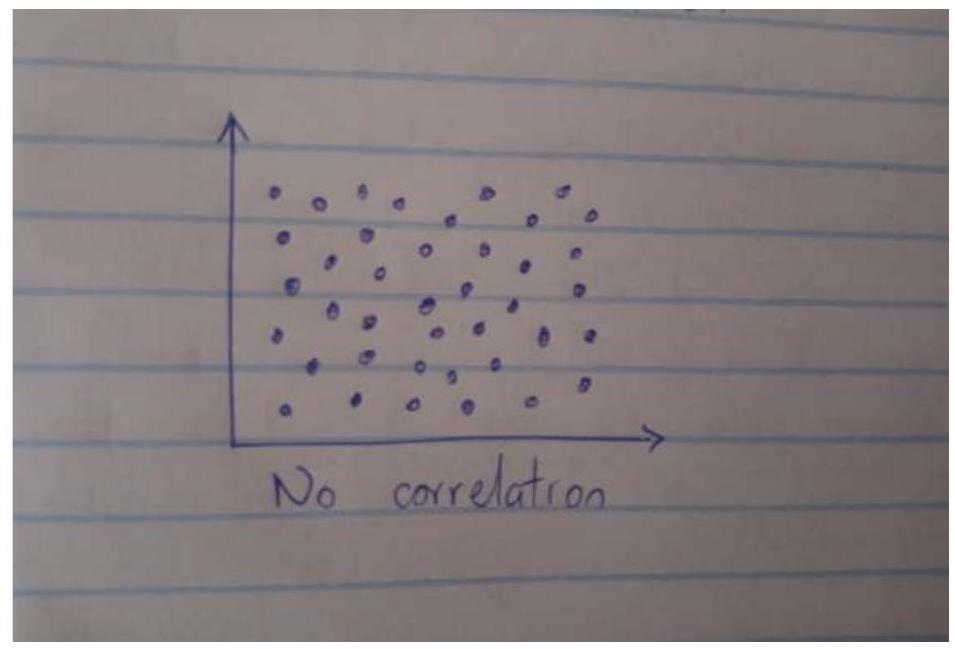 No correlation